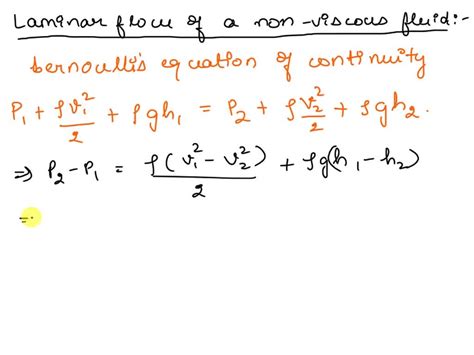 Laminar flow of a non-viscous fluid:-
bernoulli's equation of continuity
P₁ + ρv₁²/2 + ρgh₁ = P₂ + ρv₂²/2 + ρgh₂.
⇒ P₂ - P₁ = ρ(v₁² - v₂²)/2 + ρg(h₁ - h₂)
=